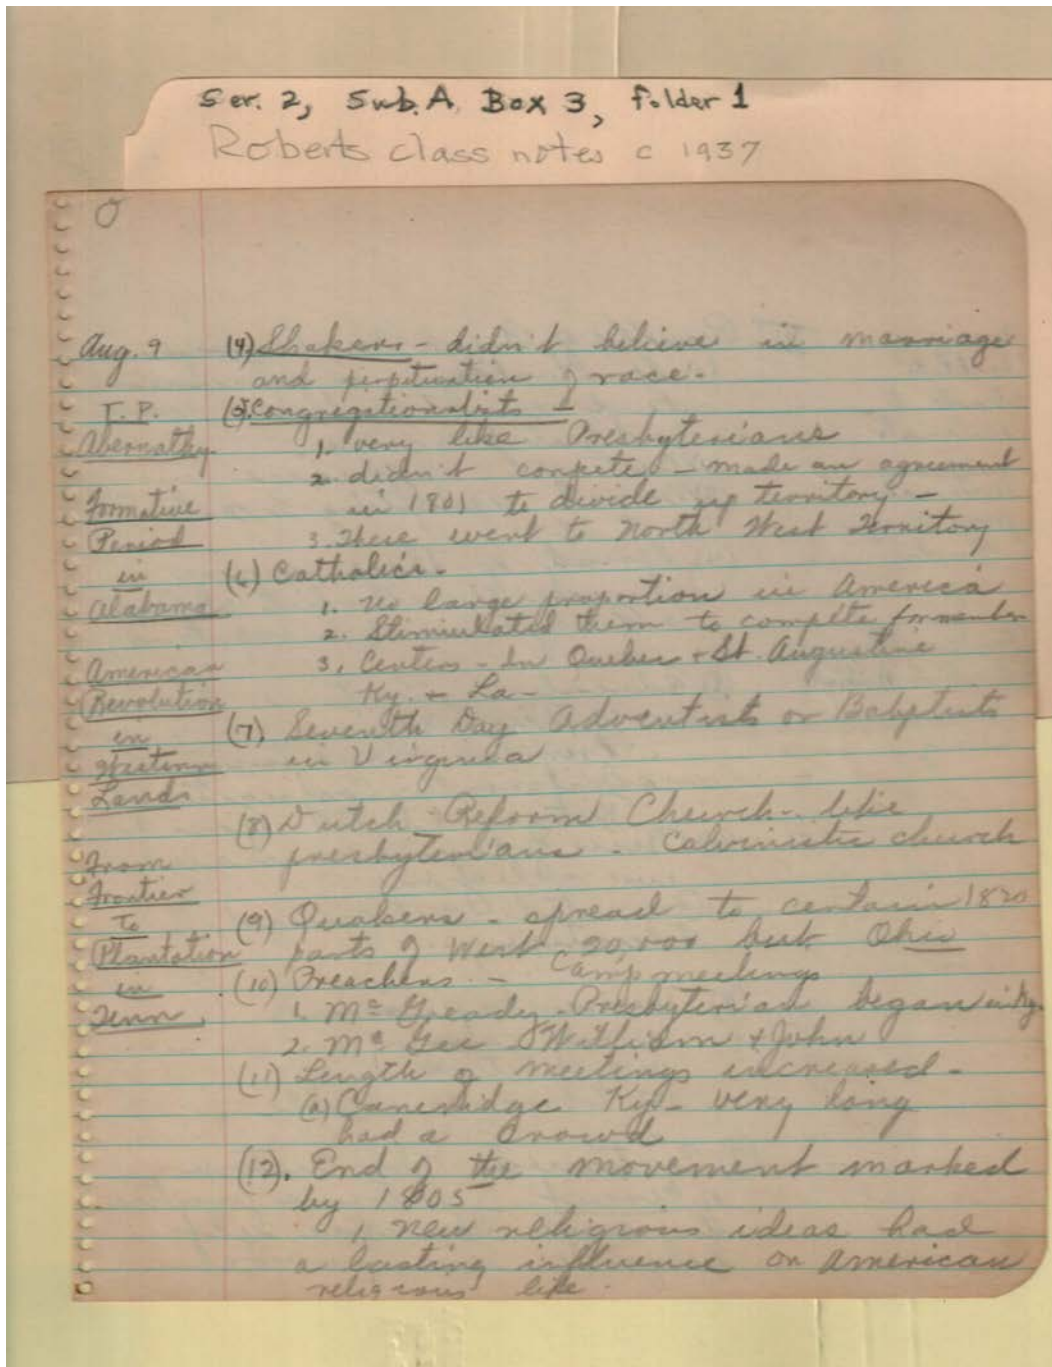 Ser. 2, Sub. A Box 3, folder 1
Roberts class notes c 1937
Aug. 9
T. P.
Abernathy
Formative
Period
in
Alabama
American
Revolution
in
Western
Lands
From
Frontier
To
Plantation
in
Tenn.
(4) Shakers - didn't believe in marriage
and perpetuation of race.
(5). Congregationalists -
1. very like Presbyterians
2. didn't compete - made an agreement
in 1801 to divide up territory -
3. These went to North West Territory
(6) Catholics.
1. No large proportion in America
2. Stimulated them to compete for members
3. Centers - In Quebec + St. Augustine
Ky. + La -
(7) Seventh Day Adventists or Baptists
in Virginia
(8) Dutch Reform Church - like
presbyterians - Calvinistic church
(9) Quakers - spread to certain 1820
parts of West 20,000 but Ohio
(10) Preachers. - Camp meetings
1. Mc Gready - Presbyterian began in Ky.
2. Mc Gee William + John
(11) Length of meetings increased -
(a) Caneridge Ky - very long
had a crowd
(12). End of the movement marked
by 1805
1. New religious ideas had
a lasting influence on American
religious life.